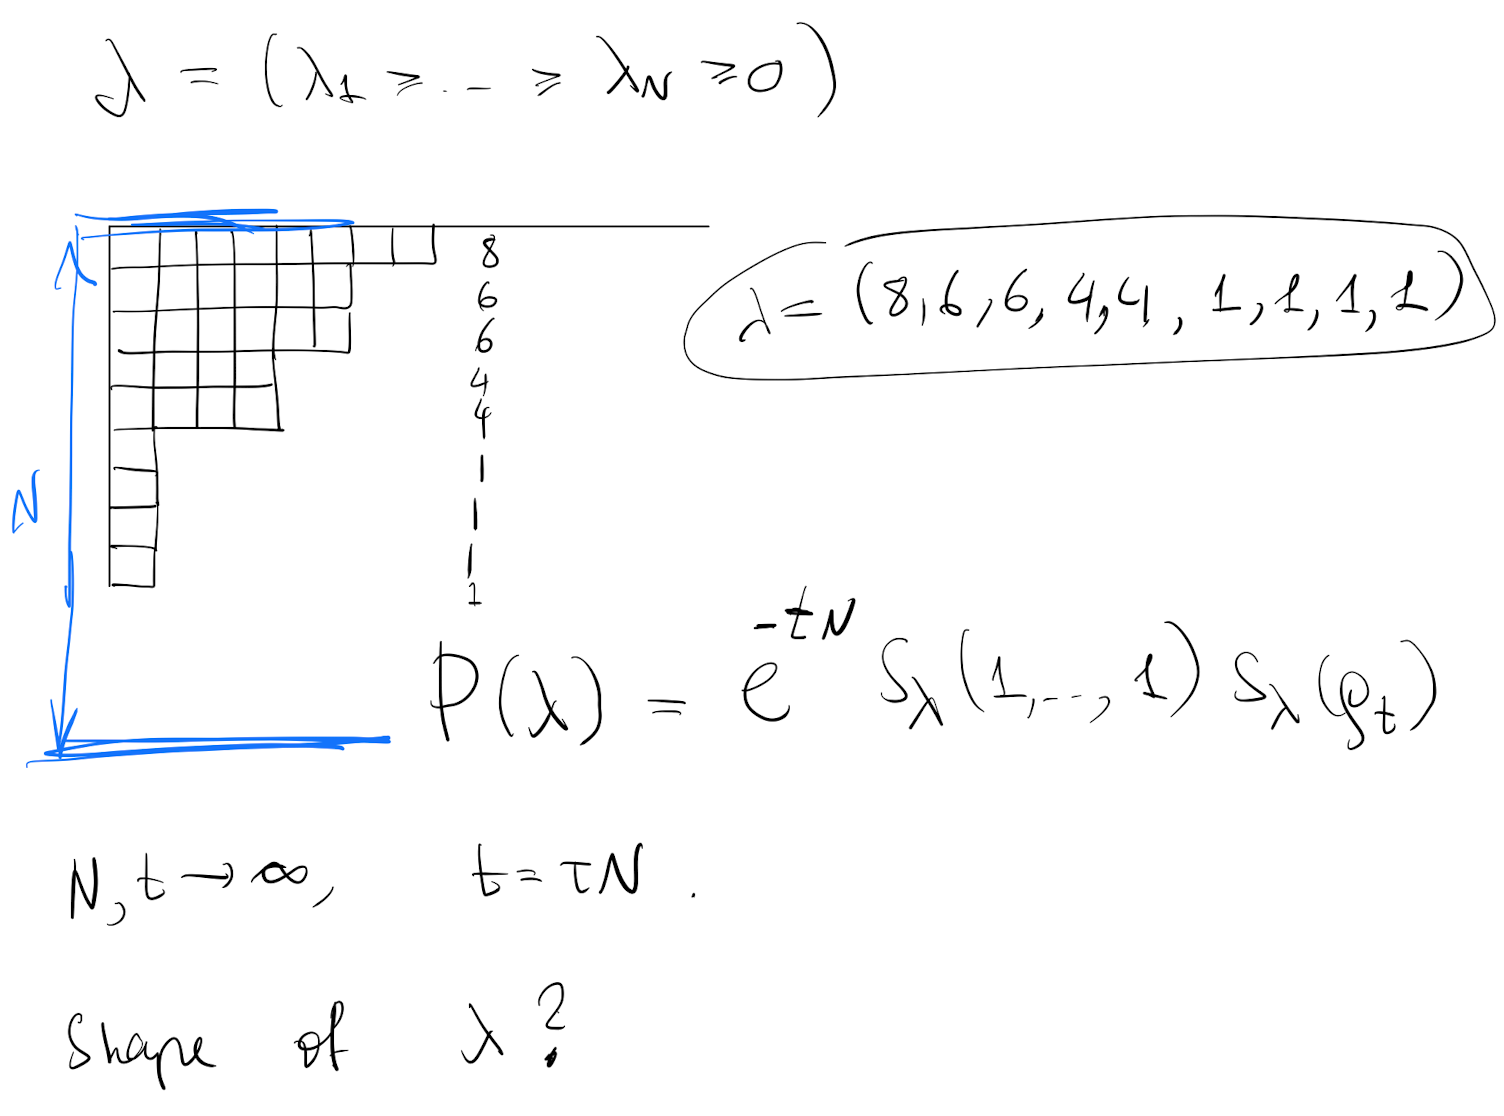 λ = (λ₁ ≥ .. ≥ λ_N ≥ 0)
8
6
6
4
4
1
1
1
1
λ = (8,6,6,4,4,1,1,1,1)
N
P(λ) = e^{-tN} S_λ(1,...,1) S_λ(ρ_t)
N, t → ∞, t = τN.
Shape of λ?